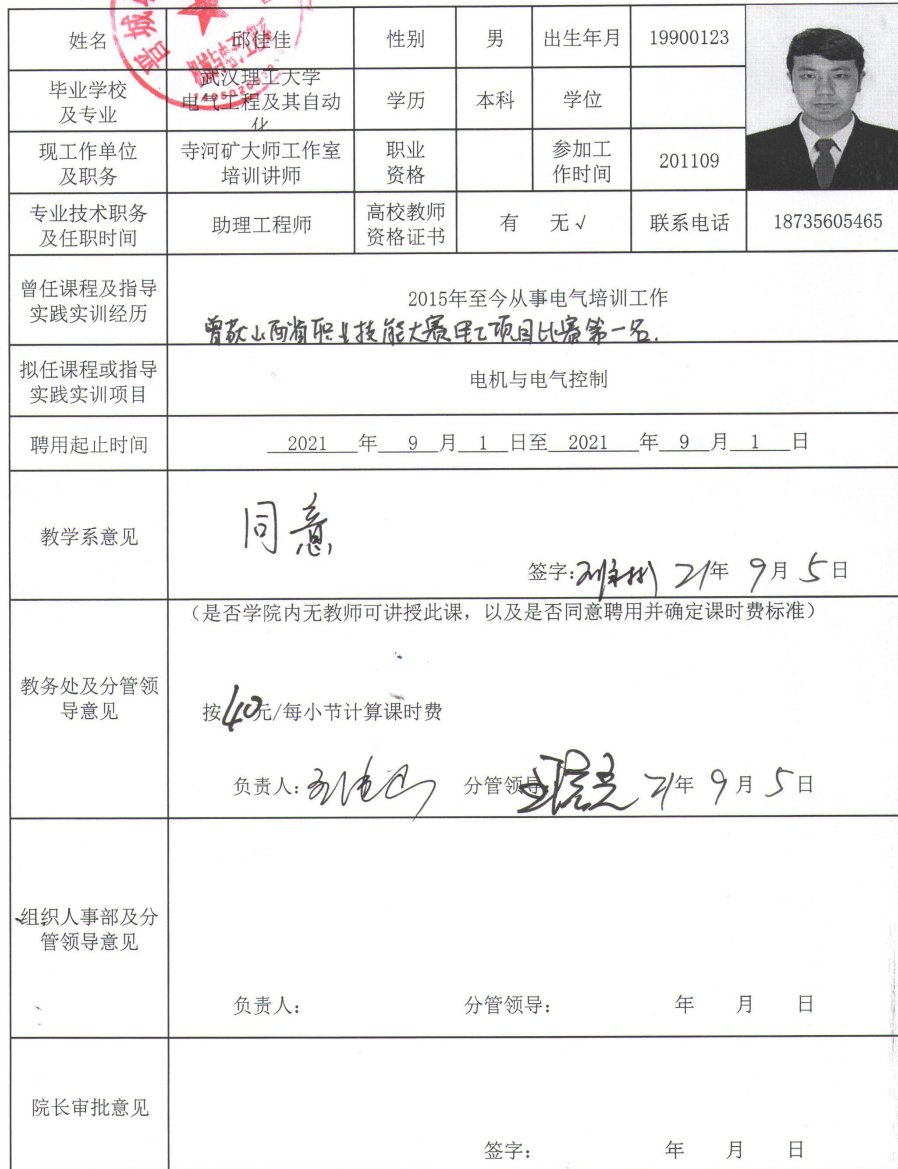 姓名 邱佳佳 性别 男 出生年月 19900123
毕业学校 武汉理工大学
及专业 电气工程及其自动 学历 本科 学位
化
现工作单位 寺河矿大师工作室 职业 参加工
及职务 培训讲师 资格 作时间 201109
专业技术职务 高校教师
及任职时间 助理工程师 资格证书 有 无√ 联系电话 18735605465
曾任课程及指导
实践实训经历
2015年至今从事电气培训工作
曾获山西省职业技能大赛电工项目比赛第一名.
拟任课程或指导
实践实训项目
电机与电气控制
聘用起止时间 2021 年 9 月 1 日至 2021 年 9 月 1 日
教学系意见
同意
签字: 21年 9月 5日
(是否学院内无教师可讲授此课，以及是否同意聘用并确定课时费标准)
教务处及分管领
导意见
按40元/每小节计算课时费
负责人: 分管领导 21年 9月 5日
组织人事部及分
管领导意见
负责人: 分管领导: 年 月 日
院长审批意见
签字: 年 月 日